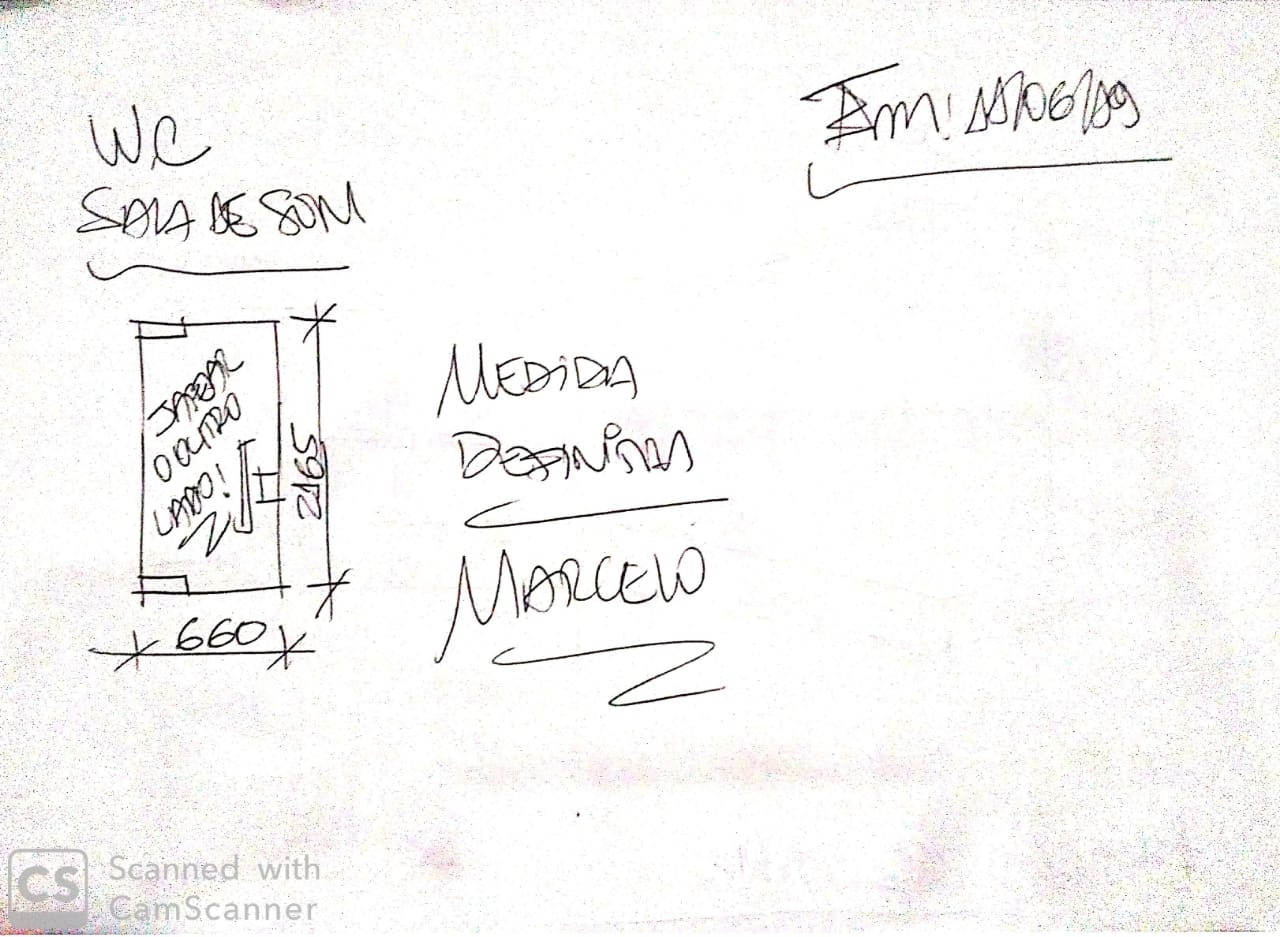 WC
SALA DE SOM
Em! 11/06/19
JATEAR
O OUTRO
LADO!
2165
660
MEDIDA
DEFINIDA
MARCELO
CS
Scanned with
CamScanner